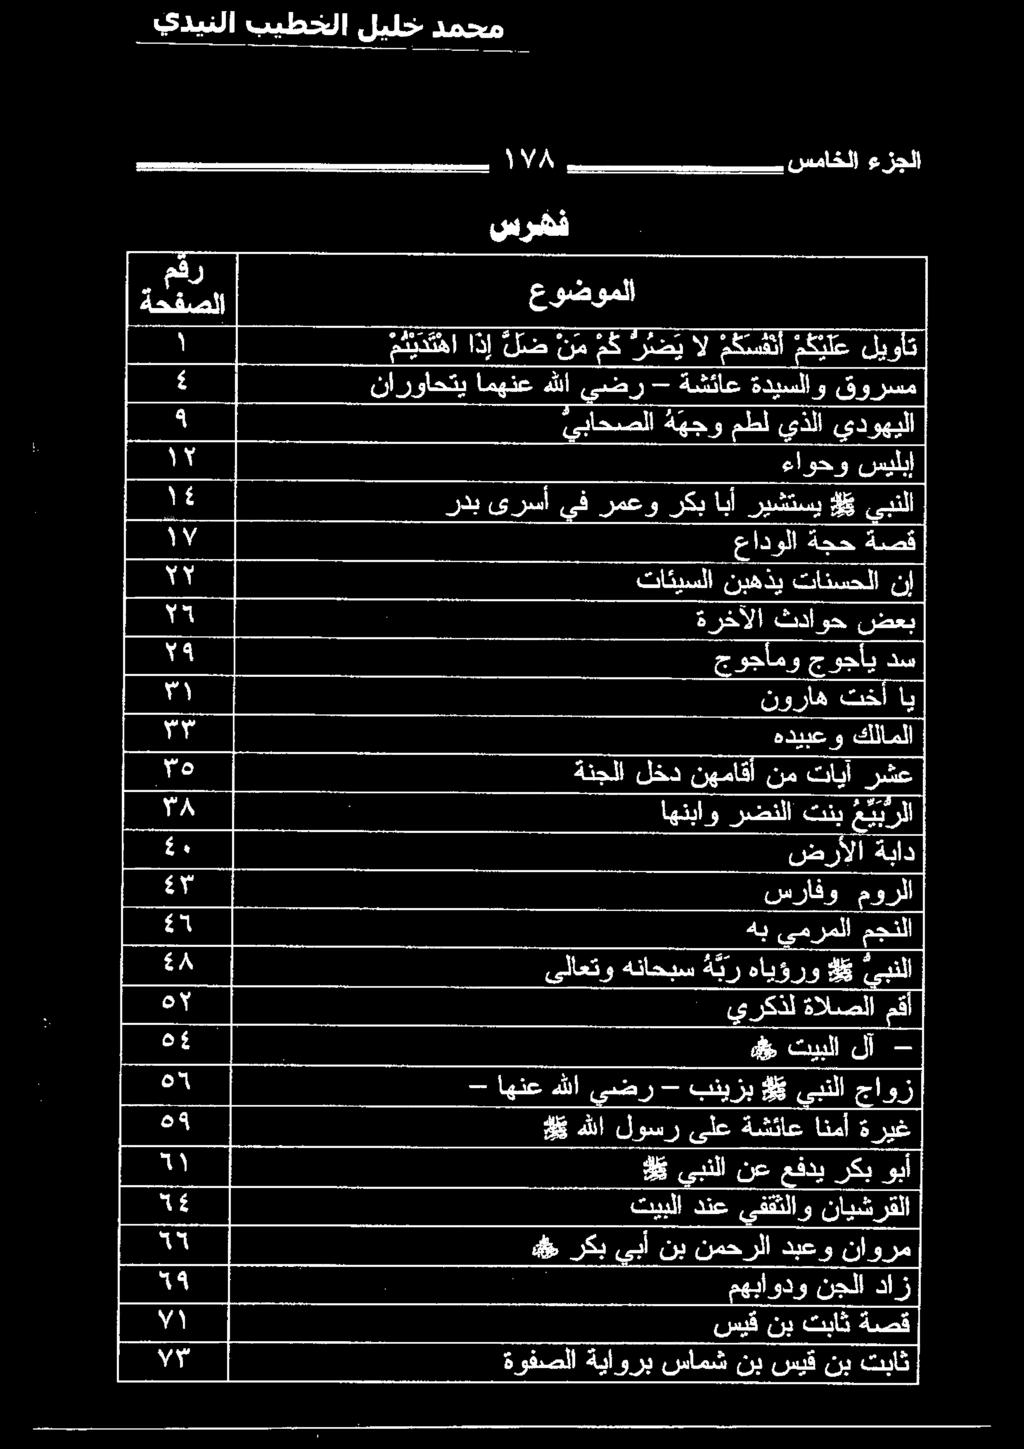 محمد خليل الخطيب النيدي
الجزء الخامس ١٧٨
فهرس
الموضوع رقم الصفحة
تأويل عَلَيْكُمْ أَنْفُسَكُمْ لا يَضُرُّ كُمْ مَنْ ضَلَّ إِذَا اهْتَدَيْتُمْ ١
مسروق والسيدة عائشة – رضي الله عنهما يتحاوران ٤
اليهودي الذي لطم وجهَهُ الصحابيُّ ٩
إبليس وحواء ١٢
النبي ﷺ يستشير أبا بكر وعمر في أسرى بدر ١٤
قصة حجة الوداع ١٧
إن الحسنات يذهبن السيئات ٢٢
بعض حوادث الآخرة ٢٦
سد يأجوج ومأجوج ٢٩
يا أخت هارون ٣١
المالك وعبيده ٣٣
عشر آيات من أقامهن دخل الجنة ٣٥
الرُّبَيِّعُ بنت النضر وابنها ٣٨
دابة الأرض ٤٠
الروم وفارس ٤٣
النجم المرمي به ٤٦
النبيُّ ﷺ ورؤياه ربَّهُ سبحانه وتعالى ٤٨
أقم الصلاة لذكري ٥٢
– آل البيت ﷺ ٥٤
زواج النبي ﷺ بزينب – رضي الله عنها – ٥٦
غيرة أمنا عائشة على رسول الله ﷺ ٥٩
أبو بكر يدفع عن النبي ﷺ ٦١
القرشيان والثقفي عند البيت ٦٤
مروان وعبد الرحمن بن أبي بكر ٦٦
زاد الجن ودوابهم ٦٩
قصة ثابت بن قيس ٧١
ثابت بن قيس بن شماس برواية الصفوة ٧٣